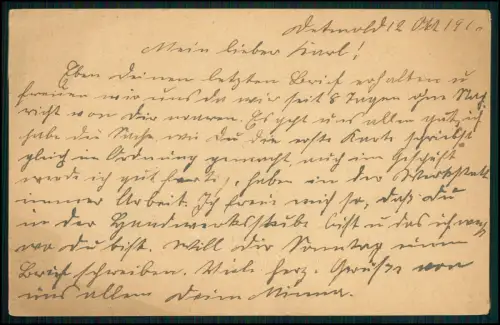 Detmold 12 Okt 191
Mein lieber Karl!
Eben deinen letzten Brief erhalten u
freuen wir uns da wir seit 8 Tagen ohne Nach
richt von Dir waren. Es geht uns allen gut, ich
habe die Sache wie du die erste Karte schriebst
gleich in Ordnung gemacht, auch im Geschäft
werde ich gut, haben in der Werkstatt
immer Arbeit. Ich freue mich so, daß du
in der Handwerksstube bist u das ich weiß
wo du bist. Will dir Sonntag einen
Brief schreiben. Viele herz. Grüße von
uns allen Deine Minna.